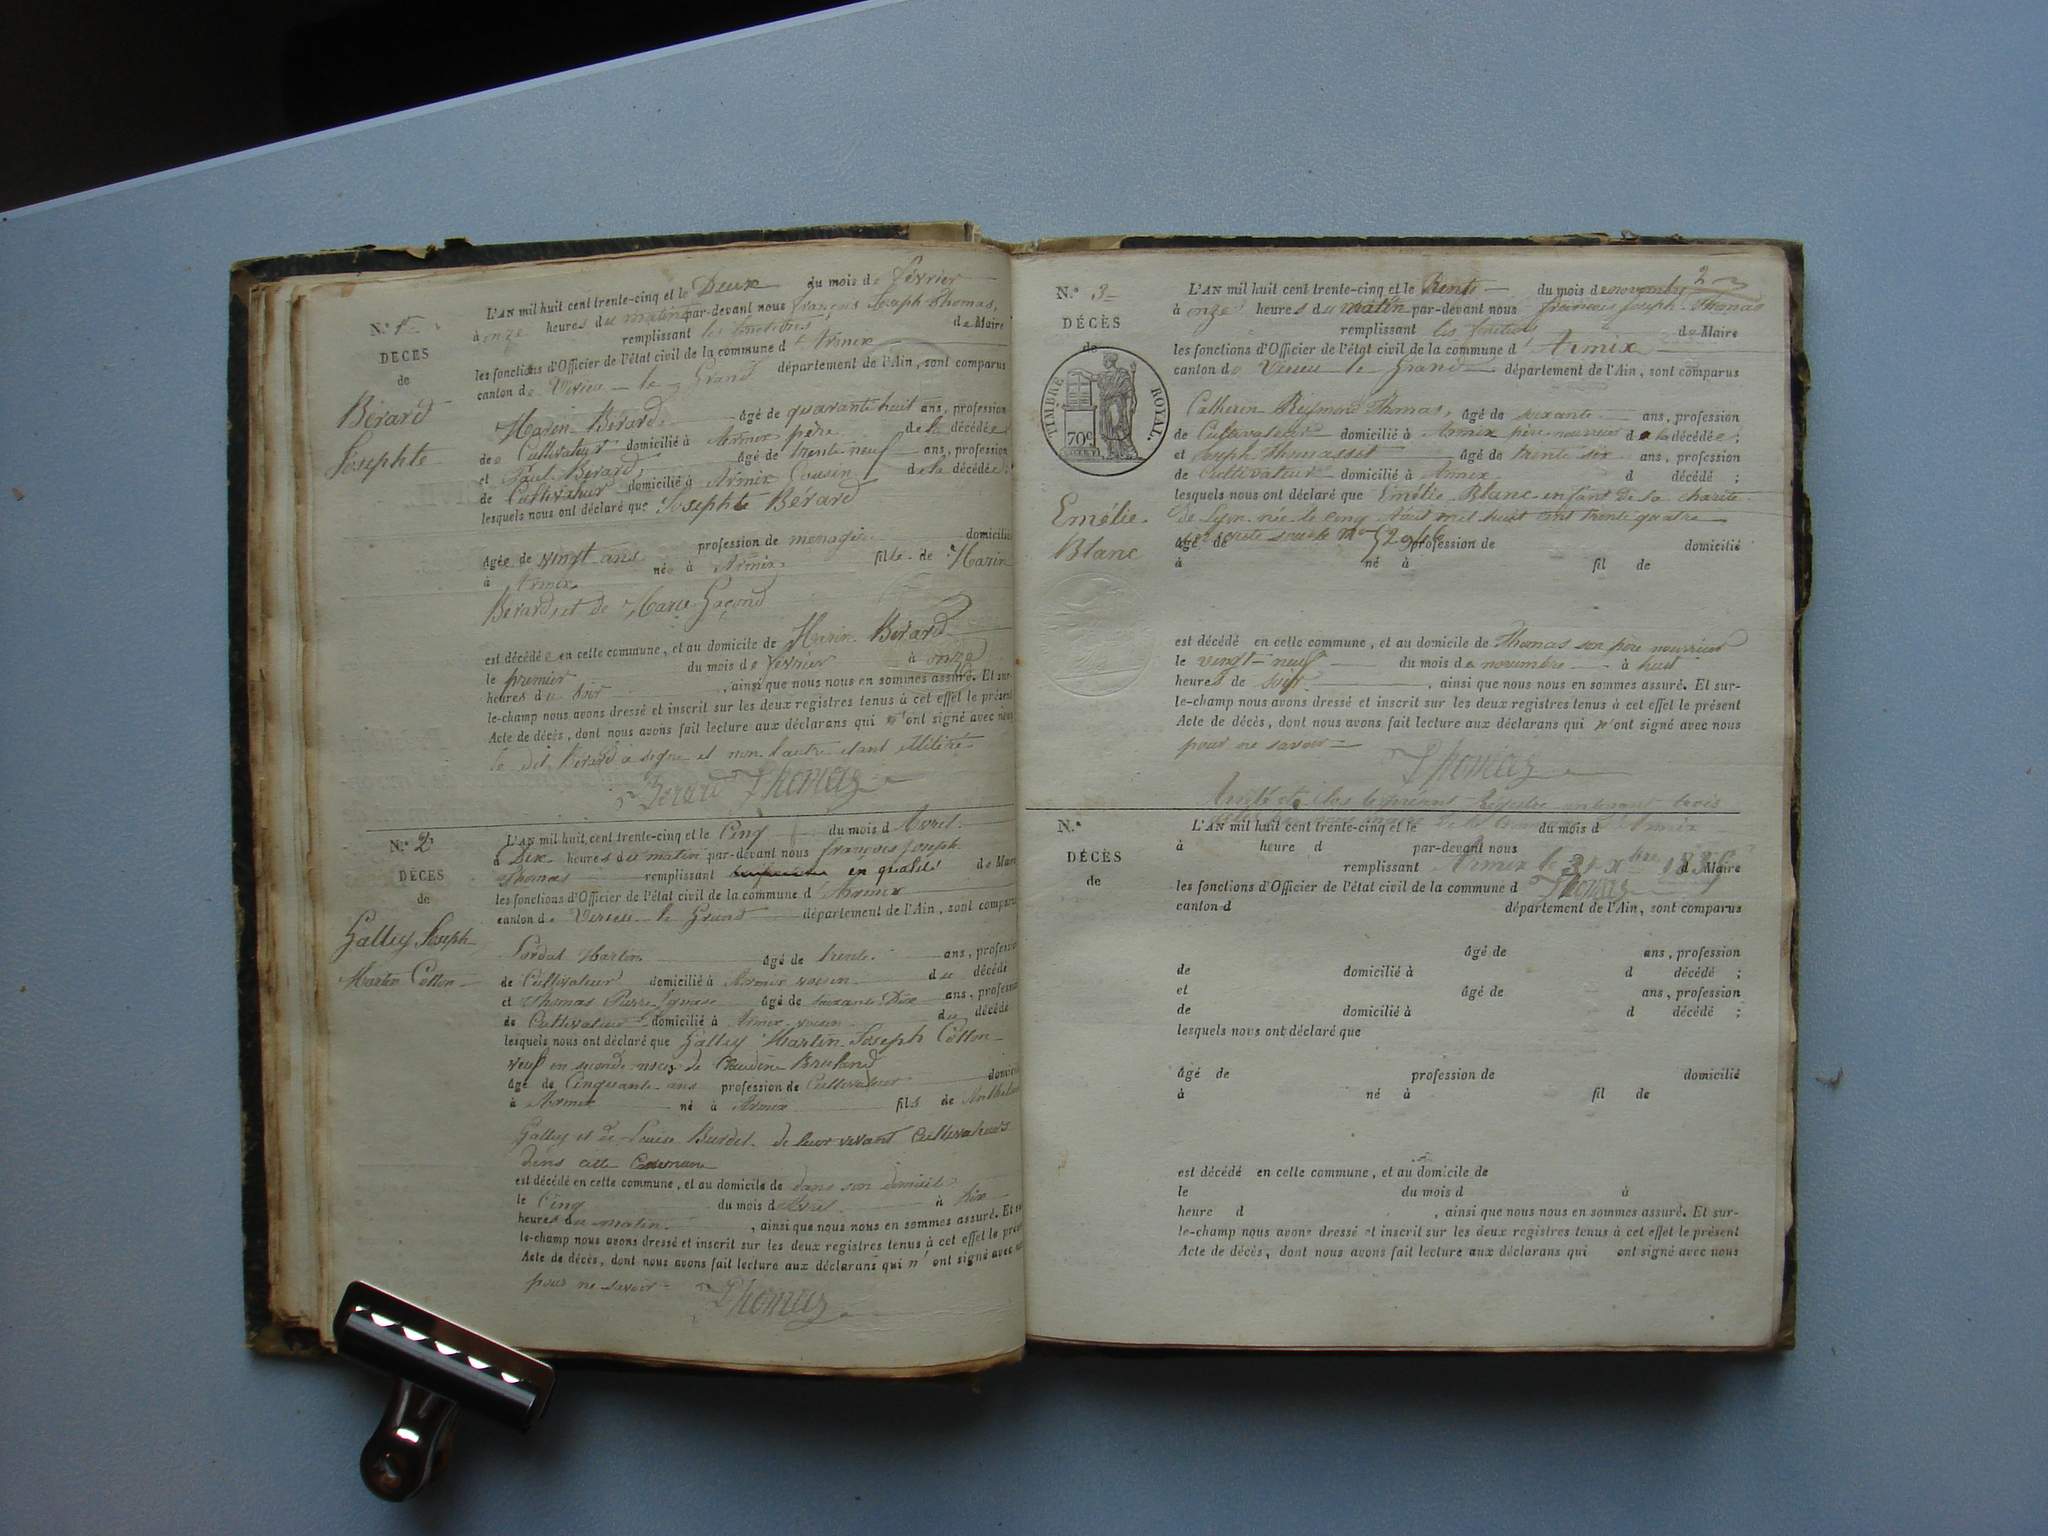 N.º 1er
DÉCÈS
de
Bérard
Josephte
L'AN mil huit cent trente-cinq et le Deux du mois de février
à onze heures du matin par-devant nous françois Joseph Thomas,
remplissant les fonctions de Maire
les fonctions d'Officier de l'état civil de la commune d'Armix
canton de Virieu le Grand département de l'Ain, sont comparus
Marin Bérard âgé de quarante huit ans, profession
de Cultivateur domicilié à Armix père de la décédée
et Paul Berard âgé de trente neuf ans, profession
de Cultivateur domicilié à Armix Cousin de la décédée;
lesquels nous ont déclaré que Josephte Bérard
âgée de vingt ans profession de menagère domicilié
à Armix née à Armix fille de Marin
Bérard, et de Marie Gaçond
est décédée en cette commune, et au domicile de Marin Bérard
le premier du mois de février à onze
heures du soir, ainsi que nous nous en sommes assuré. Et sur-
le-champ nous avons dressé et inscrit sur les deux registres tenus à cet effet le présent
Acte de décès, dont nous avons fait lecture aux déclarans qui ont signé avec nous
le dit Bérard a signé et non l'autre etant illitéré
Berard Thomas
N.º 2
DÉCÈS
de
Galley Joseph
Martin Cotton
L'AN mil huit cent trente-cinq et le Cinq du mois d'Avril
à Dix heures du matin par-devant nous françois Joseph
Thomas remplissant en qualité de Maire
les fonctions d'Officier de l'état civil de la commune d'Armix
canton de Virieu le Grand département de l'Ain, sont comparus
Martin âgé de trente ans, profession
de Cultivateur domicilié à Armix voisin du décédé
et Thomas Pierre âgé de soixante Dix ans, profession
de Cultivateur domicilié à Armix voisin du décédé
lesquels nous ont déclaré que Galley Martin Joseph Cotton
veuf en seconde noces de Claudine
âgé de Cinquante ans profession de Cultivateur domicilié
à Armix né à Armix fils de Anthelme
Galley et de Louise Burdet de leur vivant Cultivateurs
dans cette Commune
est décédé en cette commune, et au domicile de dans son domicile
le Cinq du mois d'Avril à
heures du matin, ainsi que nous nous en sommes assuré. Et sur
le-champ nous avons dressé et inscrit sur les deux registres tenus à cet effet le présent
Acte de décès, dont nous avons fait lecture aux déclarans qui n'ont signé avec nous
pour ne savoir
Thomas
2
N.º 3
DÉCÈS
de
TIMBRE ROYAL.
70c
Emélie
Blanc
L'AN mil huit cent trente-cinq et le trente du mois de novembre
à onze heures du matin par-devant nous françois Joseph Thomas
remplissant les fonctions de Maire
les fonctions d'Officier de l'état civil de la commune d'Armix
canton de Virieu le Grand département de l'Ain, sont comparus
Catherin Reymond Thomas, âgé de soixante ans, profession
de Cultivateur domicilié à Armix père nourricier de la décédée;
et Joseph Thomasset âgé de trente six ans, profession
de Cultivateur domicilié à Armix d décédé;
lesquels nous ont déclaré que Emélie Blanc enfant de la charité
de Lyon née le cinq Aout mil huit cent trente quatre
âgé de profession de domicilié
à né à fil de
est décédé en cette commune, et au domicile de Thomas son père nourricier
le vingt-neuf du mois de novembre à huit
heures de soir, ainsi que nous nous en sommes assuré. Et sur-
le-champ nous avons dressé et inscrit sur les deux registres tenus à cet effet le présent
Acte de décès, dont nous avons fait lecture aux déclarans qui n'ont signé avec nous
pour ne savoir
Thomas
Arrêté et Clos le présent Régistre contenant trois
Armix le 31 Xbre 1835
Thomas
N.º
DÉCÈS
de
L'AN mil huit cent trente-cinq et le du mois d
à heure d par-devant nous
remplissant d Maire
les fonctions d'Officier de l'état civil de la commune d
canton d département de l'Ain, sont comparus
âgé de ans, profession
de domicilié à d décédé;
et âgé de ans, profession
de domicilié à d décédé;
lesquels nous ont déclaré que
âgé de profession de domicilié
à né à fil de
est décédé en cette commune, et au domicile de
le du mois d à
heure d, ainsi que nous nous en sommes assuré. Et sur-
le-champ nous avons dressé et inscrit sur les deux registres tenus à cet effet le présent
Acte de décès, dont nous avons fait lecture aux déclarans qui ont signé avec nous